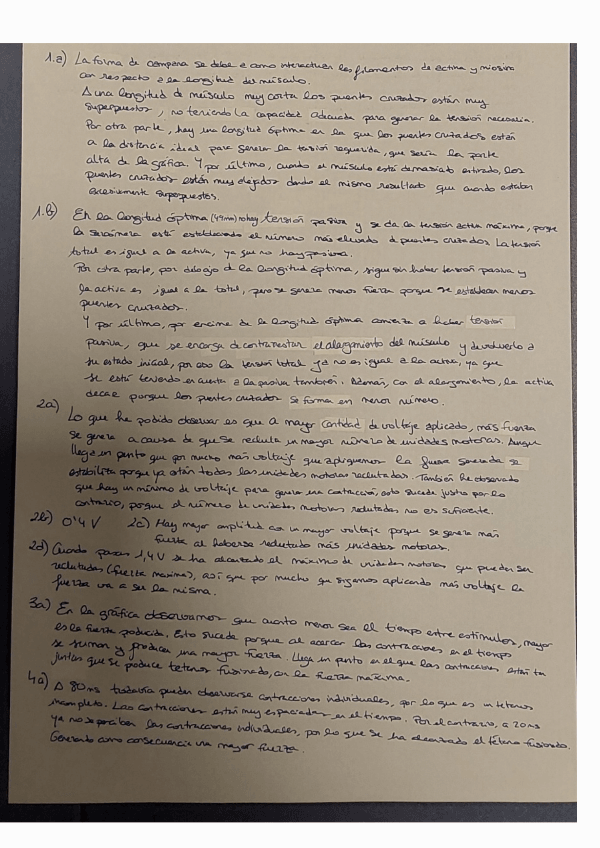 1.a) La forma de campana se debe a como interactúan los filamentos de actina y miosina
con respecto a la longitud del músculo.
A una longitud de músculo muy corta los puentes cruzados están muy
superpuestos, no teniendo la capacidad adecuada para generar la tensión necesaria.
Por otra parte, hay una longitud óptima en la que los puentes cruzados están
a la distancia ideal para generar la tensión requerida, que sería la parte
alta de la gráfica. Y por último, cuando el músculo está demasiado estirado, los
puentes cruzados están muy alejados dando el mismo resultado que cuando estaban
excesivamente superpuestos.
1.b) En la longitud óptima (49mm) no hay tensión pasiva y se da la tensión activa máxima, porque
la sarcómera está estableciendo el número más elevado de puentes cruzados. La tensión
total es igual a la activa, ya que no hay pasiva.
Por otra parte, por debajo de la longitud óptima, sigue sin haber tensión pasiva y
la activa es igual a la total, pero se genera menos fuerza porque se establecen menos
puentes cruzados.
Y por último, por encima de la longitud óptima comienza a haber tensión
pasiva, que se encarga de contrarrestar el alargamiento del músculo y devolverlo a
su estado inicial, por eso la tensión total ya no es igual a la activa, ya que
se está teniendo en cuenta a la pasiva también. Además, con el alargamiento, la activa
decae porque los puentes cruzados se forma en menor número.
2a) Lo que he podido observar es que a mayor cantidad de voltaje aplicado, más fuerza
se genera a causa de que se recluta un mayor número de unidades motoras. Aunque
llega un punto que por mucho más voltaje que apliquemos la fuerza generada se
estabiliza porque ya están todas las unidades motoras reclutadas. También he observado
que hay un mínimo de voltaje para generar una contracción, esto sucede justo por lo
contrario, porque el número de unidades motoras reclutadas no es suficiente.
2b) 0'4 V 2c) Hay mayor amplitud con un mayor voltaje porque se genera más
fuerza al haberse reclutado más unidades motoras.
2d) Cuando pasas 1,4 V se ha alcanzado el máximo de unidades motoras que pueden ser
reclutadas (fuerza maxima), así que por mucho que sigamos aplicando más voltaje la
fuerza va a ser la misma.
3a) En la gráfica observamos que cuanto menor sea el tiempo entre estímulos, mayor
es la fuerza producida. Esto sucede porque al acercar las contracciones en el tiempo
se suman y producen una mayor fuerza. Llega un punto en el que las contracciones están tan
juntas que se produce tetanos fusionado, con la fuerza máxima.
4a) A 80 ms todavía pueden observarse contracciones individuales, por lo que es un tétanos
incompleto. Las contracciones están muy espaciadas en el tiempo. Por el contrario, a 20 ms
ya no se perciben las contracciones individuales, por lo que se ha alcanzado el tétano fusionado.
Generando como consecuencia una mayor fuerza.